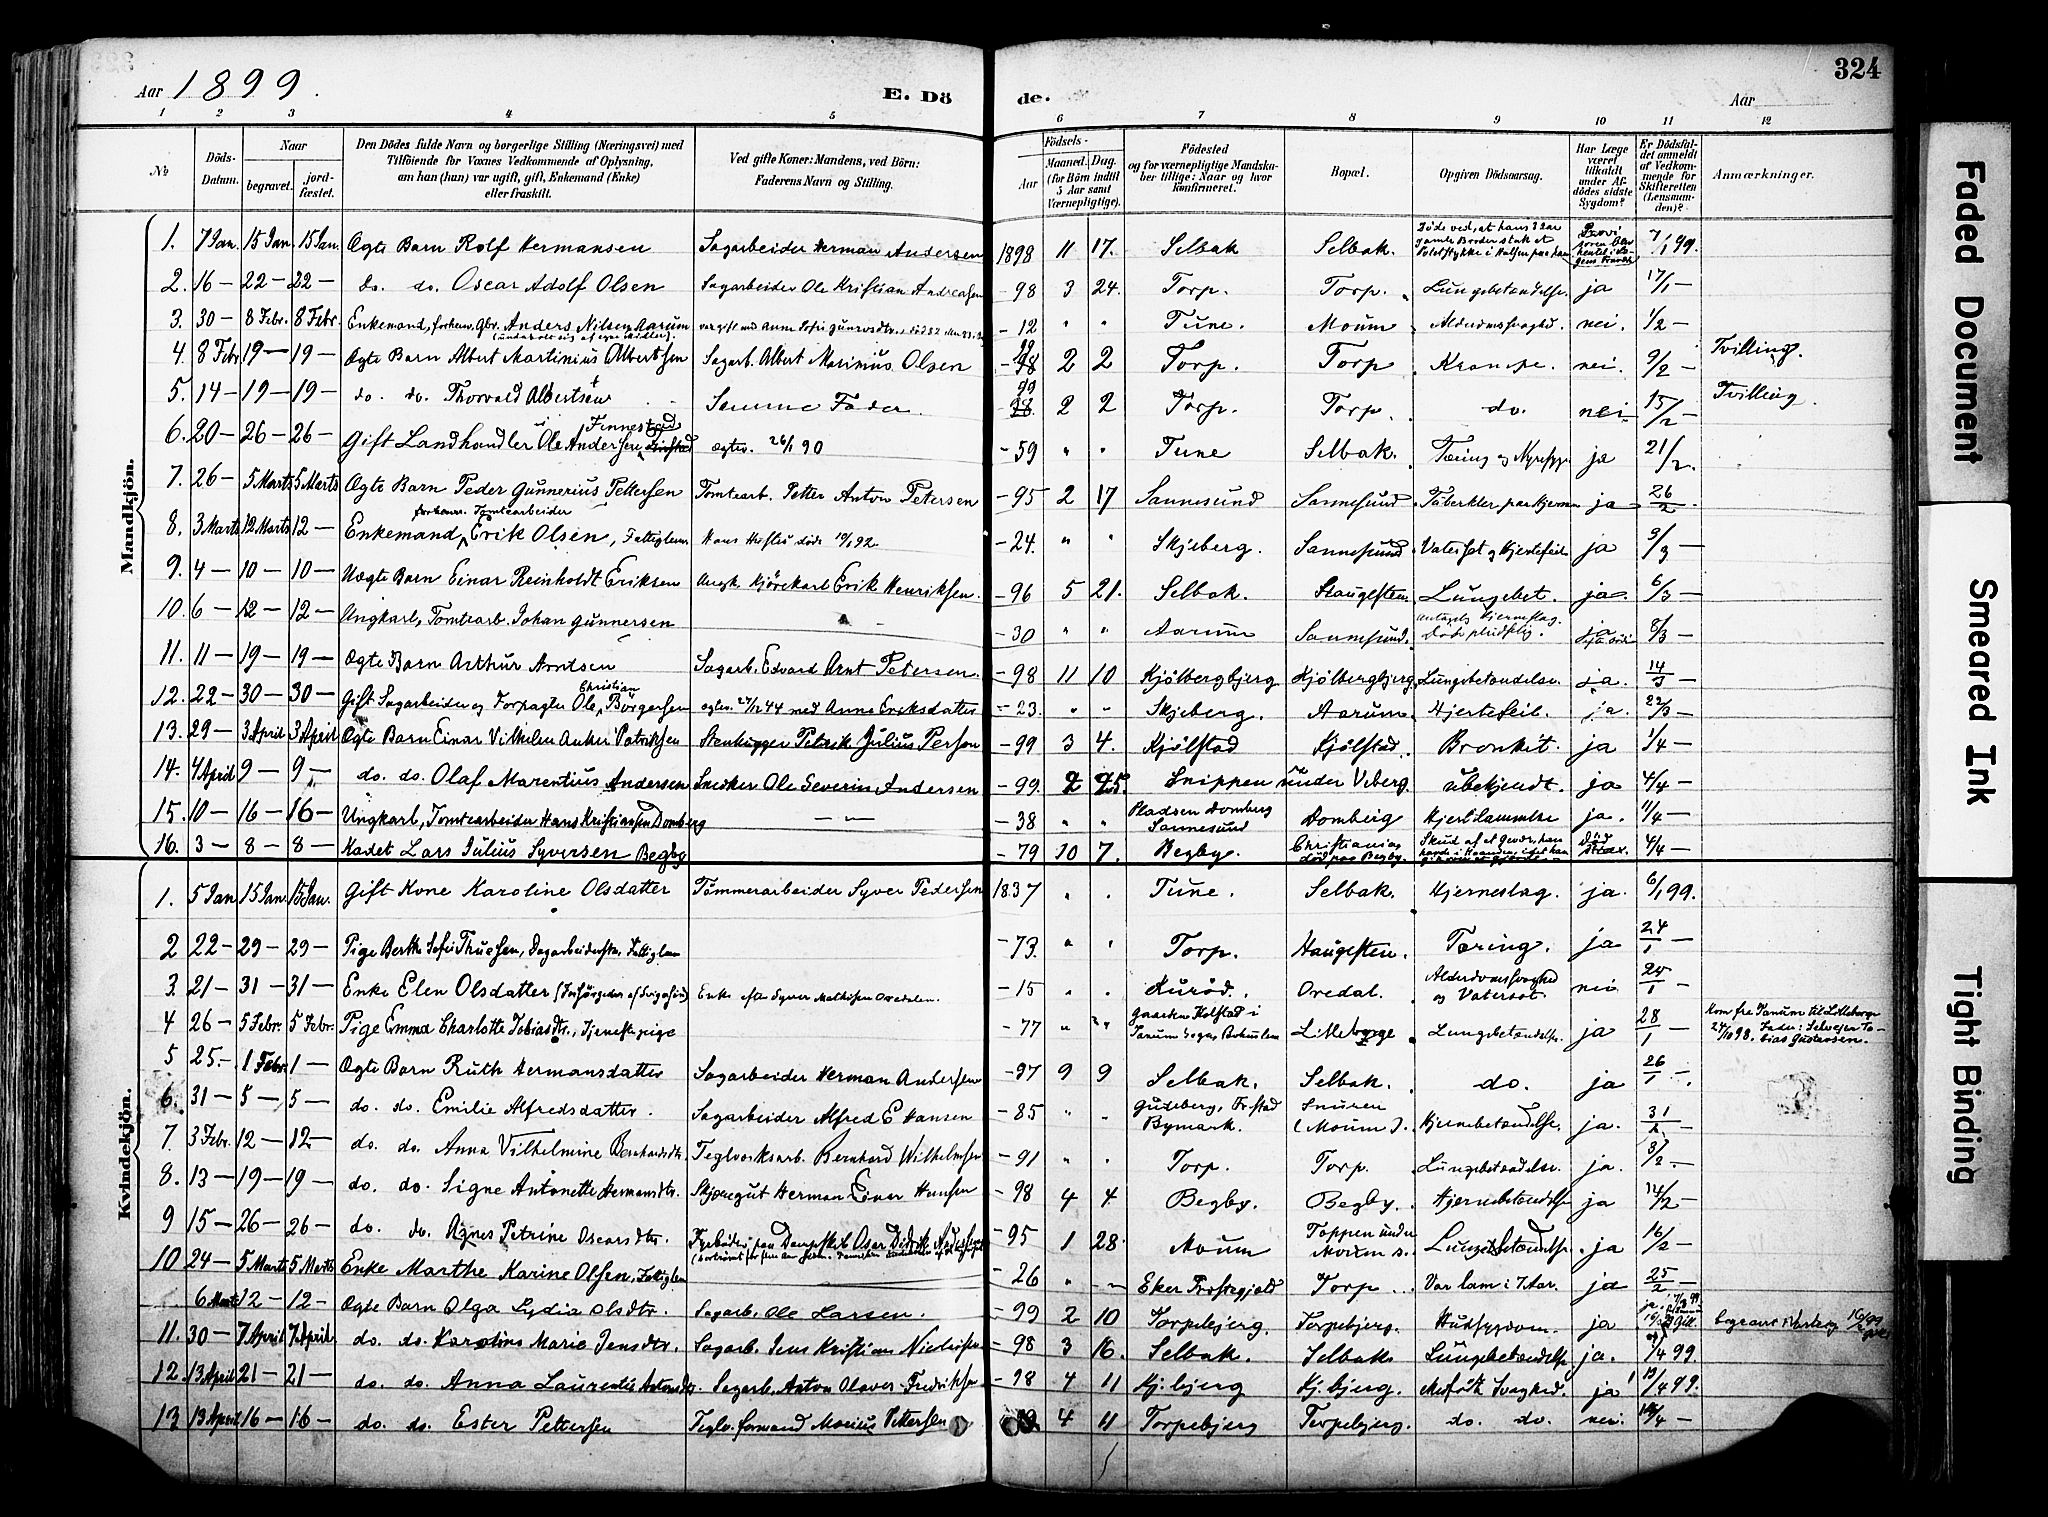 324
Aar 1899.
E. Dö
de.
Aar
1 2 3 4 5 6 7 8 9 10 11 12
№
Döds-Datum.
Naar
begravet.
jord-fæstet.
Den Dödes fulde Navn og borgerlige Stilling (Næringsvei) med
Tilföiende for Voxnes Vedkommende af Oplysning,
om han (hun) var ugift, gift, Enkemand (Enke)
eller fraskilt.
Ved gifte Koner: Mandens, ved Börn:
Faderens Navn og Stilling.
Födsels-
Aar
Maaned. Dag.
(for Börn indtil
5 Aar samt
Værnepligtige).
Födested
og for værnepligtige Mandska-
ber tillige: Naar og hvor
konfirmeret.
Bopæl.
Opgiven Dödsaarsag.
Har Læge
været
tilkaldt
under Af-
dödes sidste
Sygdom?
Er Dödsfal-
det anmeldt
af Vedkom-
mende for
Skifteretten
(Lensman-
den)?
Anmærkninger.
Mandkjön.
1. 7 Jan. 15 Jan 15 Jan. Ægte Barn Rolf Hermansen Sagarbeider Herman Andersen 1898 11 17. Selbak Selbak. Döde ved, at hans 3 Aar gamle Broder stak et 7/1 99.
2. 16 — 22 — 22 — do. do. Oscar Adolf Olsen Sagarbeider Ole Kristian Andreasen - 98 3 24. Torp. Torp. Lungebetændelse. ja 17/1 —
3. 30 — 8 Febr. 8 Febr. Enkemand, forhenv. Gbr. Anders Nilsen Aarum - 12 " " Tune. Moum Alderdomssvaghed. nei. 1/2 —
4. 8 Febr 19 — 19 — Ægte Barn Albert Martinius Albertsen Sagarb. Albert Marinius Olsen - 99 2 2 Torp. Torp Krampe. nei. 9/2 — Tvilling.
5. 14 — 19 — 19 — do. do. Thorvald Albertsen Samme Fader. - 99 2 2 Torp. Torp. do. nei 15/2 — Tvilling.
6. 20 — 26 — 26 — Gift Landhandler Ole Andersen Finnestad ægtev. 26/1 90 - 59 " " Tune Selbak. Tæring og Nyresyge ja 21/2.
7. 26 — 5 Marts 5 Marts Ægte Barn Peder Gunnerius Pettersen Tomtearb. Petter Anton Petersen - 95 2 17 Sannesund Sannesund Tuberkler paa Hjernen ja 26/2 —
8. 3 Marts 12 Marts 12 — Enkemand forhenv. Tomtearbeider Erik Olsen, Fattiglem Hans Hustru döde 19/1 92. - 24. " " Skjeberg. Sannesund Vatersot og Hjertefeil ja 3/3 —
9. 4 — 10 — 10 — Uægte Barn Einar Reinholdt Eriksen Ungk. Kjörekarl Erik Henriksen. - 96 5 21. Selbak. Haugesten. Lungebet. ja. 6/3 —
10. 6 — 12 — 12 — Ungkarl, Tomtearb. Johan Gunnersen - 30 " " Aarum Sannesund. Antagelig Hjerneslag. Döde pludselig. 8/3 —
11. 11 — 19 — 19 — Ægte Barn Arthur Arntsen Sagarb. Edvard Arnt Petersen. - 98 11 10 Kjölbergbjerg Kjölbergbjerg Lungebetændelse. ja. 14/3 —
12. 22 — 30 — 30 — Gift Sagarbeider og Forpagter Ole Christian Borgersen ægtev. 27/12 44 med Anne Eriksdatter - 23. " " Skjeberg. Aarum. Hjertefeil. ja. 22/3 —
13. 29 — 3 April 3 April Ægte Barn Einar Vilhelm Anker Patriksen Stenhugger Patrik Julius Person - 99 3 4. Kjölstad Kjölstad. Bronkit. ja 1/4 —
14. 4 April 9 — 9 — do. do. Olaf Marentius Andersen Snedker Ole Severin Andersen - 99. 2 25. Snippen under Veberg. ubekjendt. ja 4/4 —
15. 10 — 16 — 16 — Ungkarl, Tomtearbeider Hans Kristiansen Domberg — " — - 38 " " Pladsen Domberg Sannesund Domberg Hjertelammelse ja. 11/4 —
16. 3 — 8 — 8 — Kadet Lars Julius Syversen Begby - 79 10 7. Begby. Christiania död paa Begby. Skud af et Gevær, han havde i Haanden, död strax. 4/4 —
Kvindekjön.
1. 5 Jan 15 Jan. 15 Jan. Gift Kone Karoline Olsdatter Tömmerarbeider Syver Pedersen 1837 " " Tune. Selbak. Hjerneslag. ja. 6/1 99.
2 22 — 29 — 29 — Pige Berthe Sofie Thuesen, Dagarbeiderske, Fattiglem - 73. " " Torp. Haugesten. Tæring. ja 24/1 —
3. 21 — 31 — 31 — Enke Elen Olsdatter Enke efter Syver Mathisen Oredalen. - 15 " " Huröd. Oredal. Alderdomssvaghed og Vatersot. nei 25/1 —
4 26 — 5 Febr. 5 Febr. Pige Emma Charlotte Tobiasdtr., Tjenestepige - 77 " " Gaarden Kolstad i Tanum Sogn Bohuslen Lilleborge Lungebetændelse. ja 28/1 Kom fra Tanum til Lilleborge 24/10 98. Fader: Selveier Tobias Gustavsen.
5 25. - 1 Febr. 1 — Ægte Barn Ruth Hermansdatter Sagarbeider Herman Andersen - 97 9 9 Selbak. Selbak. do. ja 26/1 -.
6. 31 — 5 — 5 — do. do. Emilie Alfredsdatter. Sagarbeider Alfred E Hansen - 85 " " Gudeberg, Fr.stad Bymark. Snuren (Moum). Hjernebetændelse. ja. 31/1 —
7. 3 Febr. 12 — 12 — do. do. Anna Vilhelmine Bernhardsdtr. Teglverksarb. Bernhard Wilhelmsen - 91 " " Torp. Torp. Lungebetændelse. ja. 8/2. —
8. 13 — 19 — 19 — do. do. Signe Antonette Hermansdtr. Herman Einar Hansen - 98 4 4 Begby. Begby. Hjernebetændelse ja 14/2 —
9 15 — 26 — 26 — do. do. Agnes Petrine Oscarsdtr. Fyrböder paa Dampskib Oscar Didrik - 95 1 28. Moum Toppen under Lungebetændelse. ja 16/2 —
10 24 — 5 Marts 5 Marts Enke Marthe Karine Olsen, Fattiglem - 26 " — Eker Fr.stegjæld Torp. Var lam i 7 Aar. ja 25/2 —
6 Marts 12 — 12 — Ægte Barn Olga Lydia Olsdtr. Sagarb. Ole Larsen. - 99 2 10 Torpebjerg. Torpebjerg. Hudsygdom. ja
11. 30 — 7 April 7 April do. do. Karoline Marie Jensdtr. Sagarb. Jens Kristian - 98 3 16. Selbak. Selbak Lungebetændelse ja. 4/4 99.
12. 13 April 21 — 21 — do. do. Anna Laurentse Antonsdtr. Sagarb. Anton Olaves Fredriksen - 98 4 11 Kj.bjerg Kj.bjerg. Medfödt Svaghed. ja 13/4 99.
13 13 April 16 — 16 — do. do. Ester Pettersen Teglv. formand Marius Pettersen 4 11 Torpebjerg Torpebjerg. do. do. nei. /4 —
Faded Document
Smeared Ink
Tight Binding